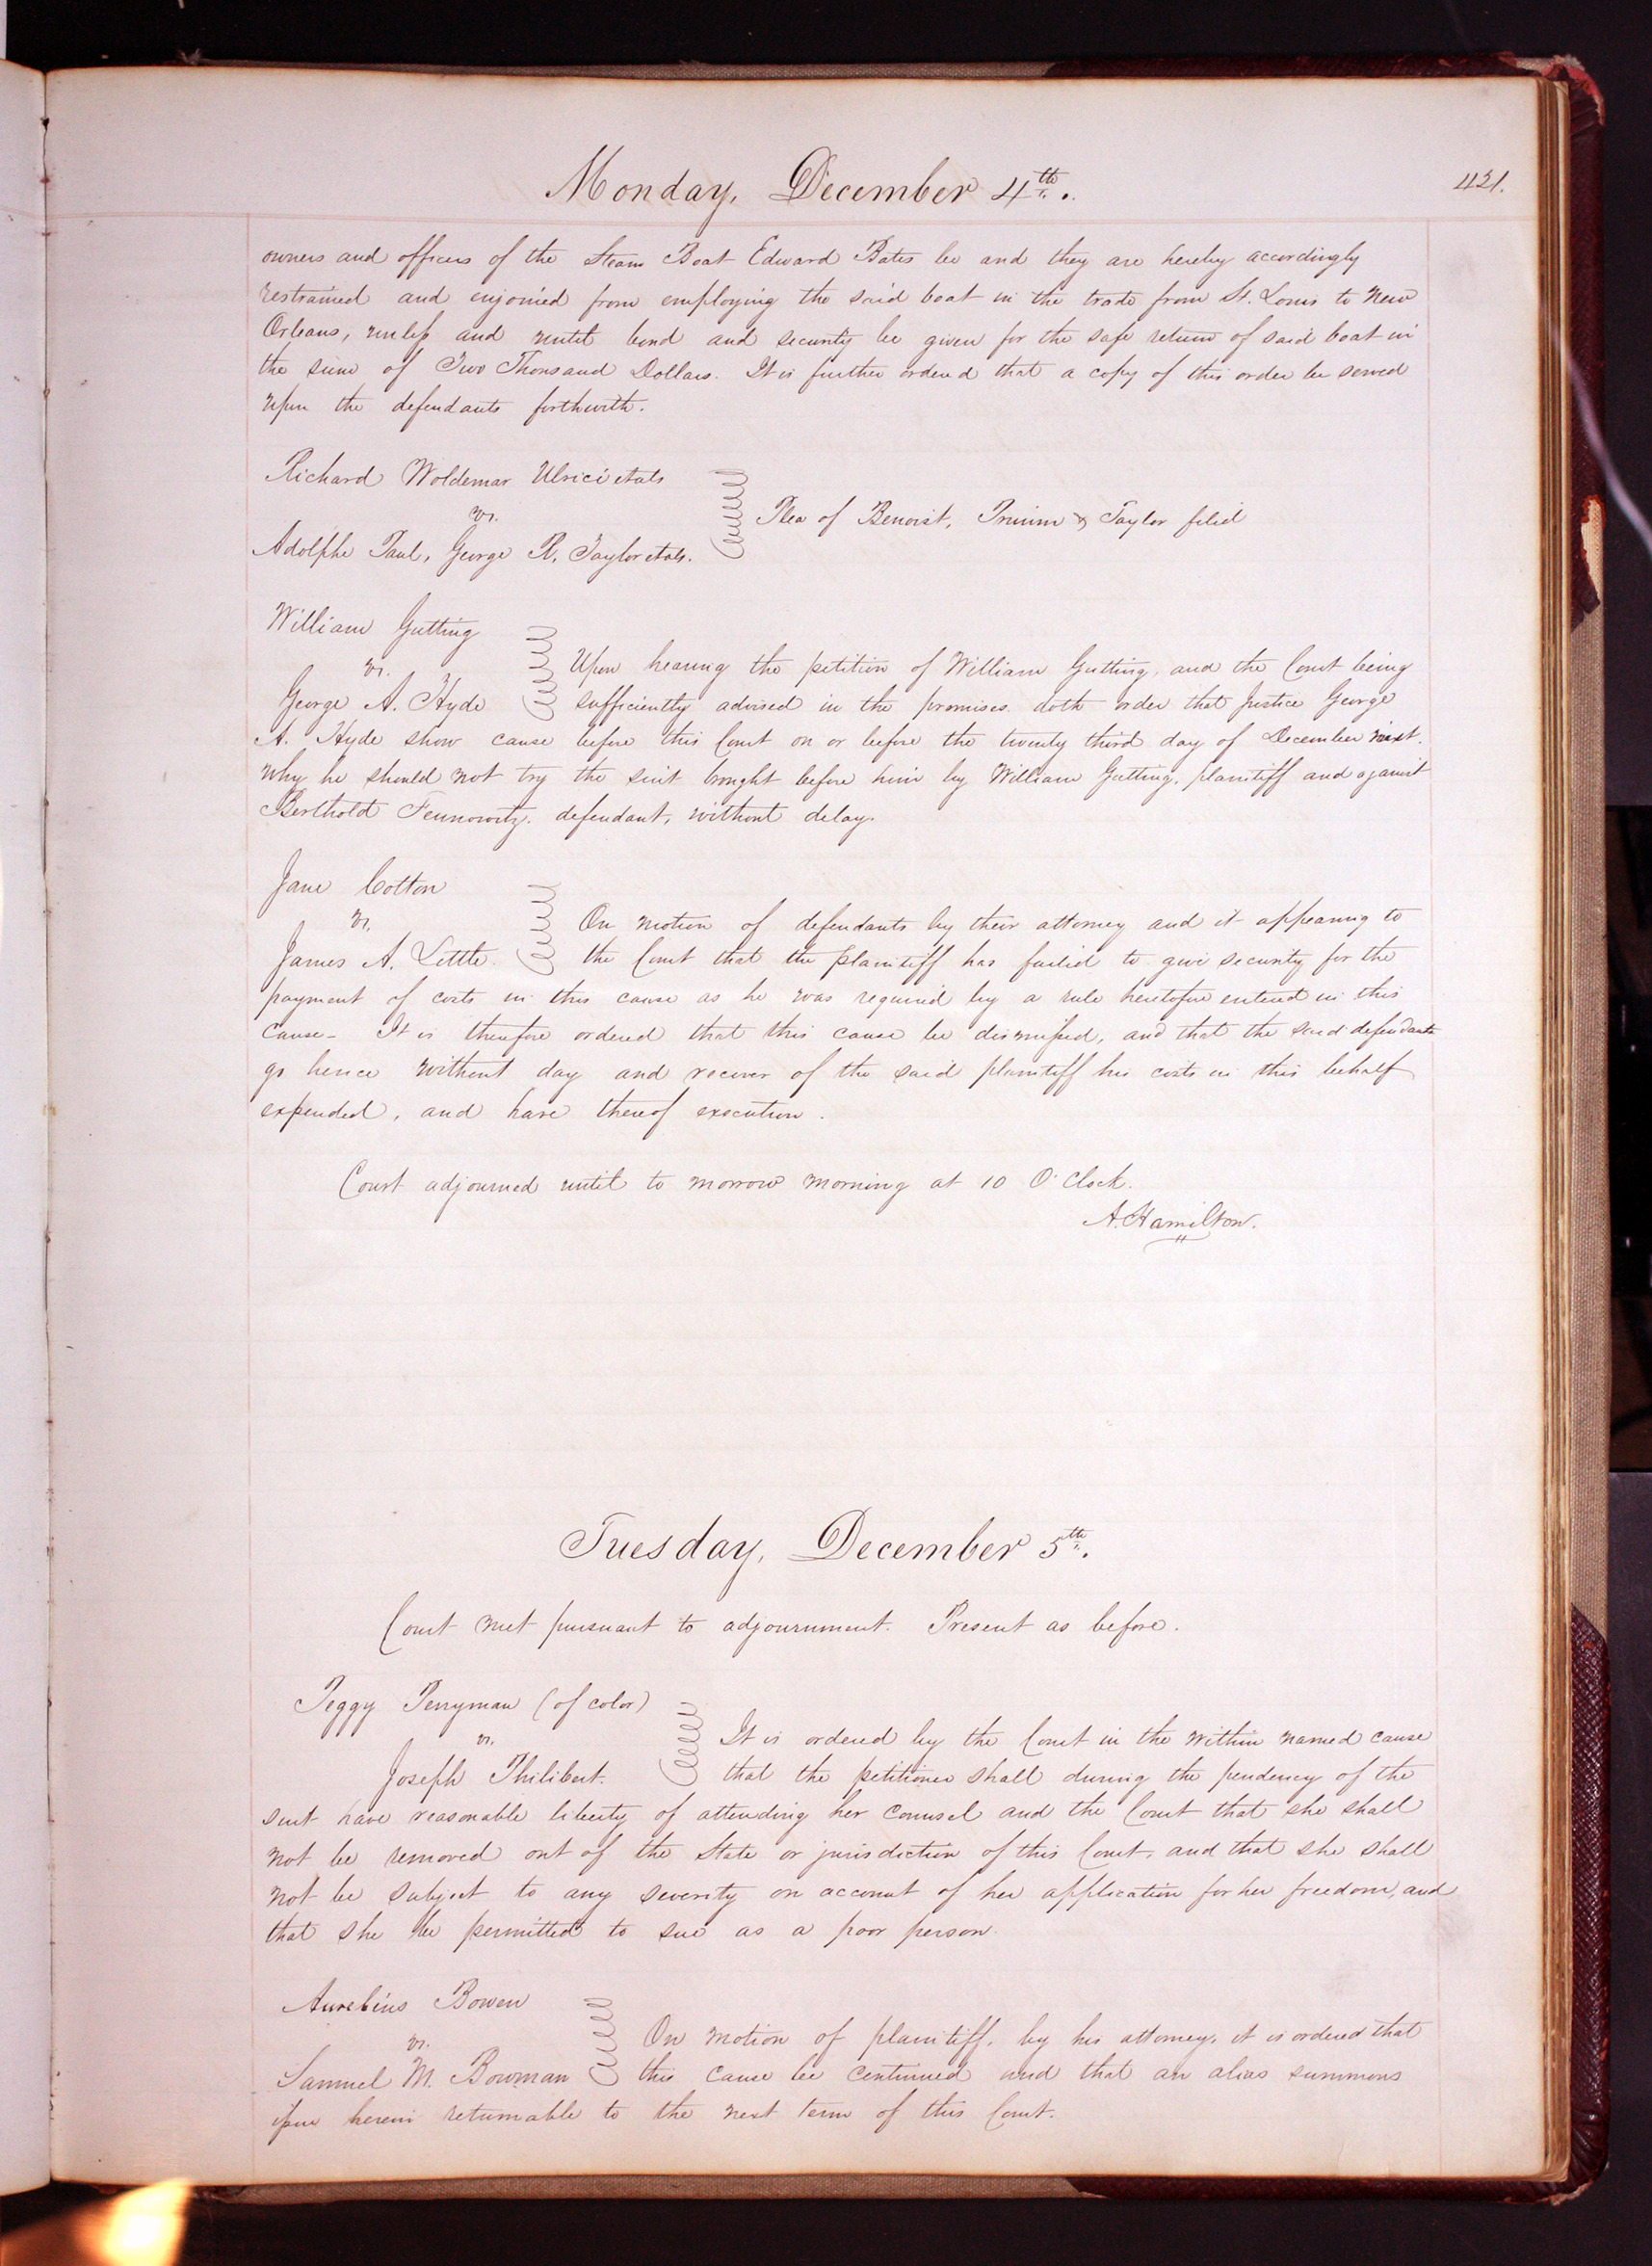 Monday, December 4th.
421.
owners and officers of the Steam Boat Edward Bates be and they are hereby accordingly
restrained and enjoined from employing the said boat in the trade from St. Louis to New
Orleans, unless and until bond and security be given for the safe return of said boat in
the sum of Two Thousand Dollars. It is further ordered that a copy of this order be served
upon the defendants forthwith.
Richard Woldemar Ulrici et als
vs.
Adolphe Paul, George R. Taylor et als.
Plea of Benoist, & Taylor filed
William Gutting
vs.
George A. Hyde
Upon hearing the petition of William Gutting, and the Court being
sufficiently advised in the premises doth order that Justice George
A. Hyde show cause before this Court on or before the twenty third day of December next.
why he should not try the suit brought before him by William Gutting, plaintiff and against
Berthold defendant, without delay.
Jane Cotton
vs.
James A. Little.
On motion of defendants by their attorney and it appearing to
the Court that the plaintiff has failed to give security for the
payment of costs in this cause as he was required by a rule heretofore entered in this
cause - It is therefore ordered that this cause be dismissed, and that the said defendants
go hence without day and recover of the said plaintiff his costs in this behalf
expended, and have thereof execution.
Court adjourned until to morrow morning at 10 O'Clock.
A. Hamilton.
Tuesday, December 5th.
Court met pursuant to adjournment. Present as before.
Peggy Perryman (of color)
vs.
Joseph Philibert.
It is ordered by the Court in the within named cause
that the petitioner shall during the pendency of the
suit have reasonable liberty of attending her Counsel and the Court that she shall
not be removed out of the State or jurisdiction of this Court, and that she shall
not be subject to any severity on account of her application for her freedom, and
that she be permitted to sue as a poor person.
Aurelius Bowen
vs.
Samuel M. Bowman
On motion of plaintiff, by his attorney, it is ordered that
this cause be continued and that an alias summons
issue herein returnable to the next term of this Court.